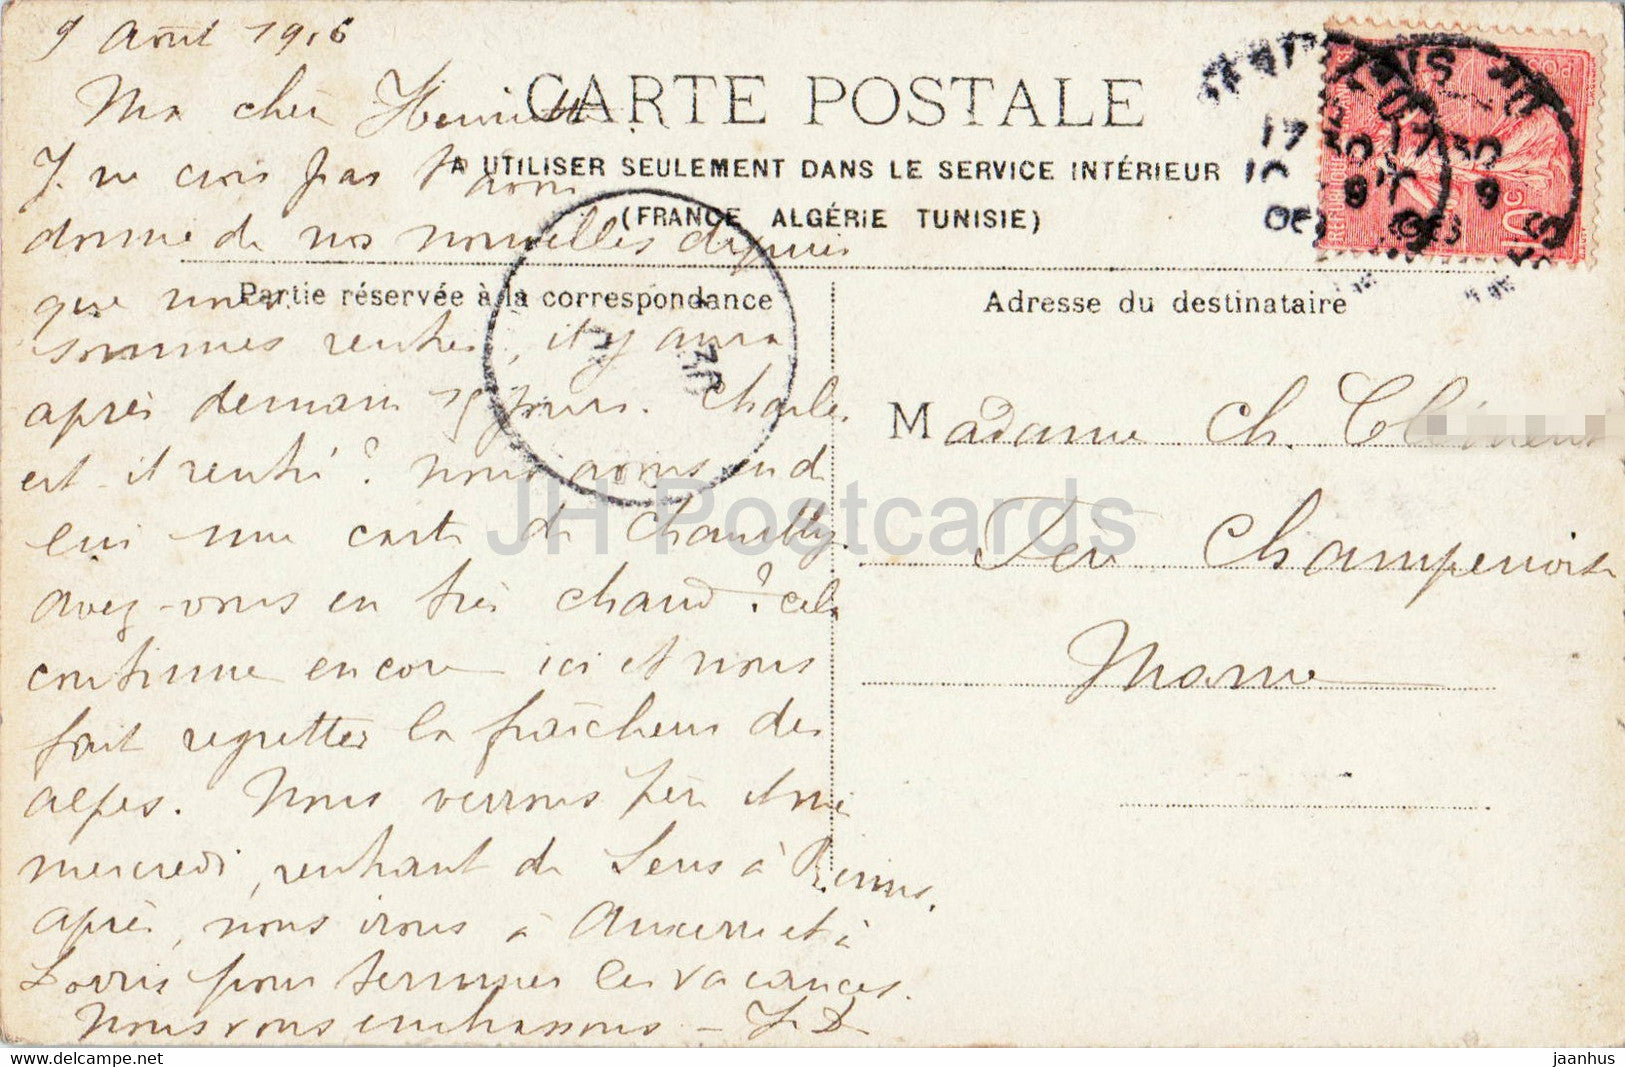 9 Août 1906
Ma chère Henriette.
CARTE POSTALE
A UTILISER SEULEMENT DANS LE SERVICE INTÉRIEUR
(FRANCE ALGÉRIE TUNISIE)
Je ne crois pas t'avoir
donné de nos nouvelles depuis
Partie réservée à la correspondance
que nous
sommes rentrés, il y aura
après demain 15 jours. Charles
est-il rentré? nous avons eu de
lui une carte de Chantilly.
avez-vous eu très chaud? cela
continue encore ici et nous
fait regretter la fraîcheur des
alpes. Nous verrons père et mère
mercredi, rentrant de Sens à Reims.
après, nous irons à Auxerre et à
Lorris pour terminer les vacances.
Nous vous embrassons –
Adresse du destinataire
Madame Ch.
Fère Champenoise
Marne
JH Postcards
delcampe.net
jaanhus